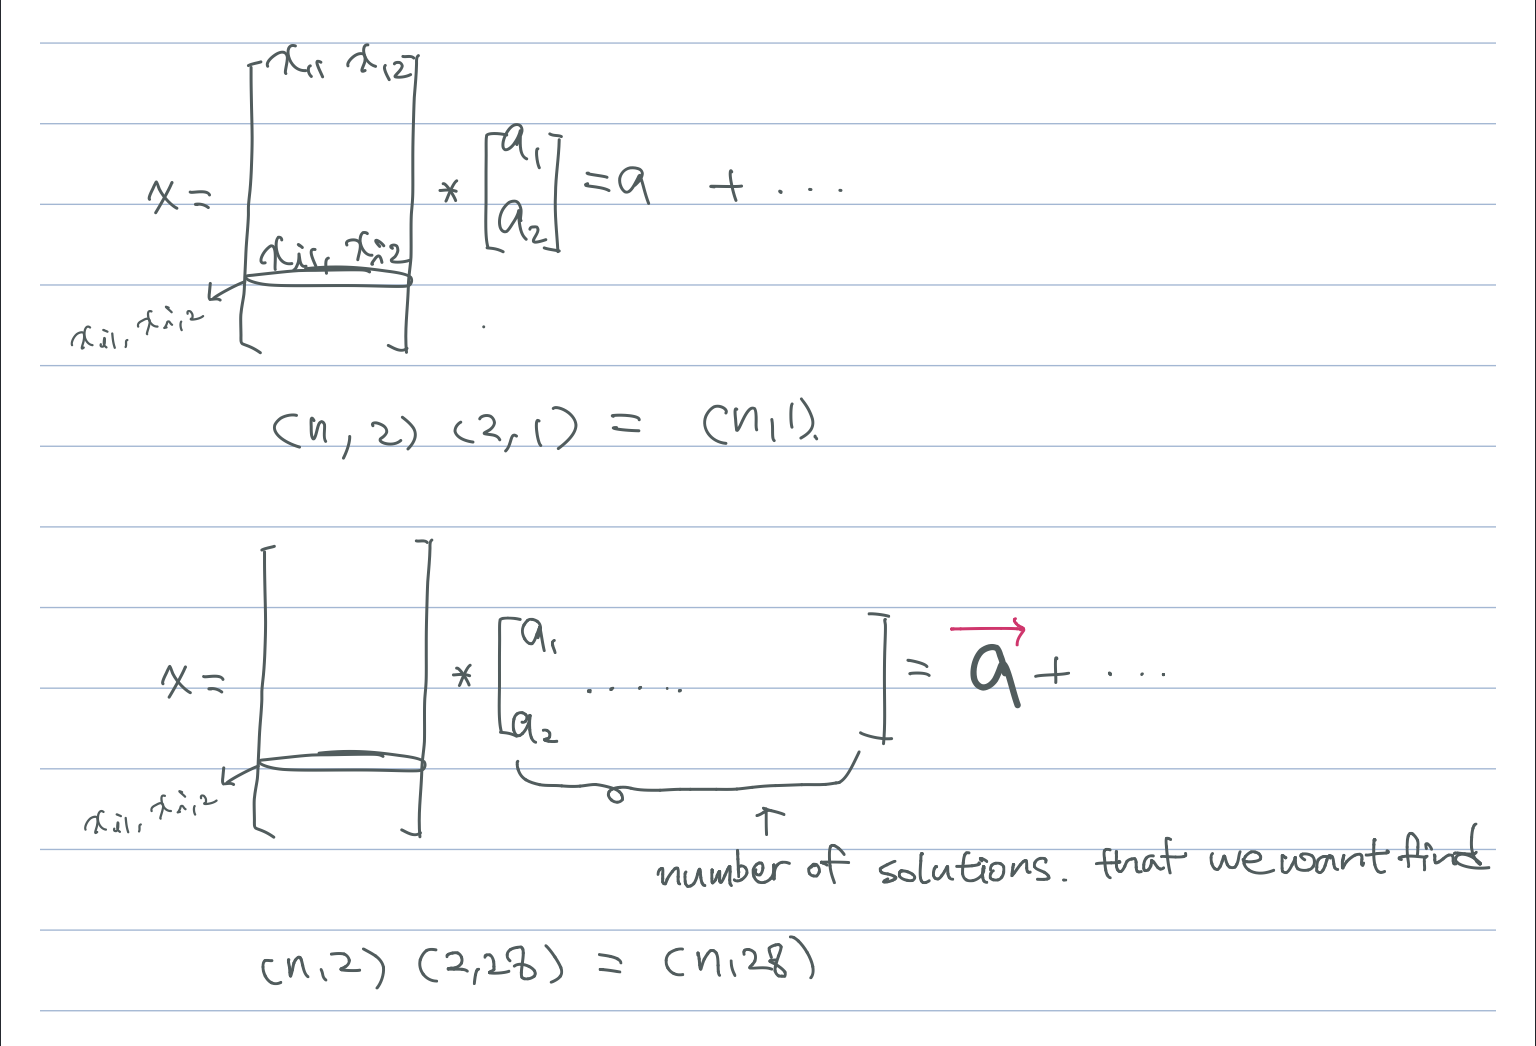 x₁₁ x₁₂
x = * [a₁ a₂] = a + ...
xᵢ₁, xᵢ,₂
xᵢ₁, xᵢ,₂
(n, 2) (2, 1) = (n, 1).
x = * [a₁ ..... a₂] = a⃗ + ...
xᵢ₁, xᵢ,₂
number of solutions. that we want find
(n, 2) (2, 28) = (n, 28)